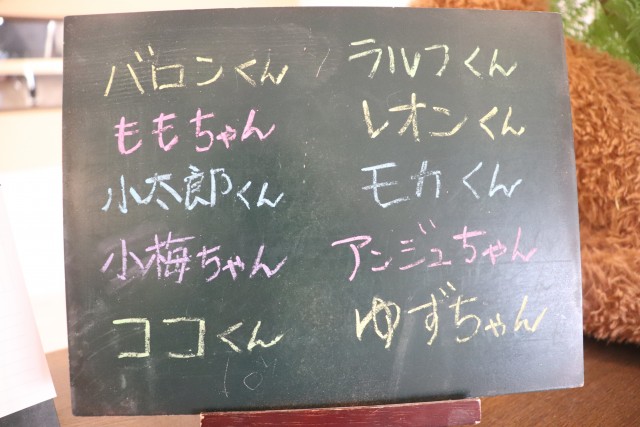 バロンくん
ももちゃん
小太郎くん
小梅ちゃん
ココくん
ラルフくん
レオンくん
モカくん
アンジュちゃん
ゆずちゃん